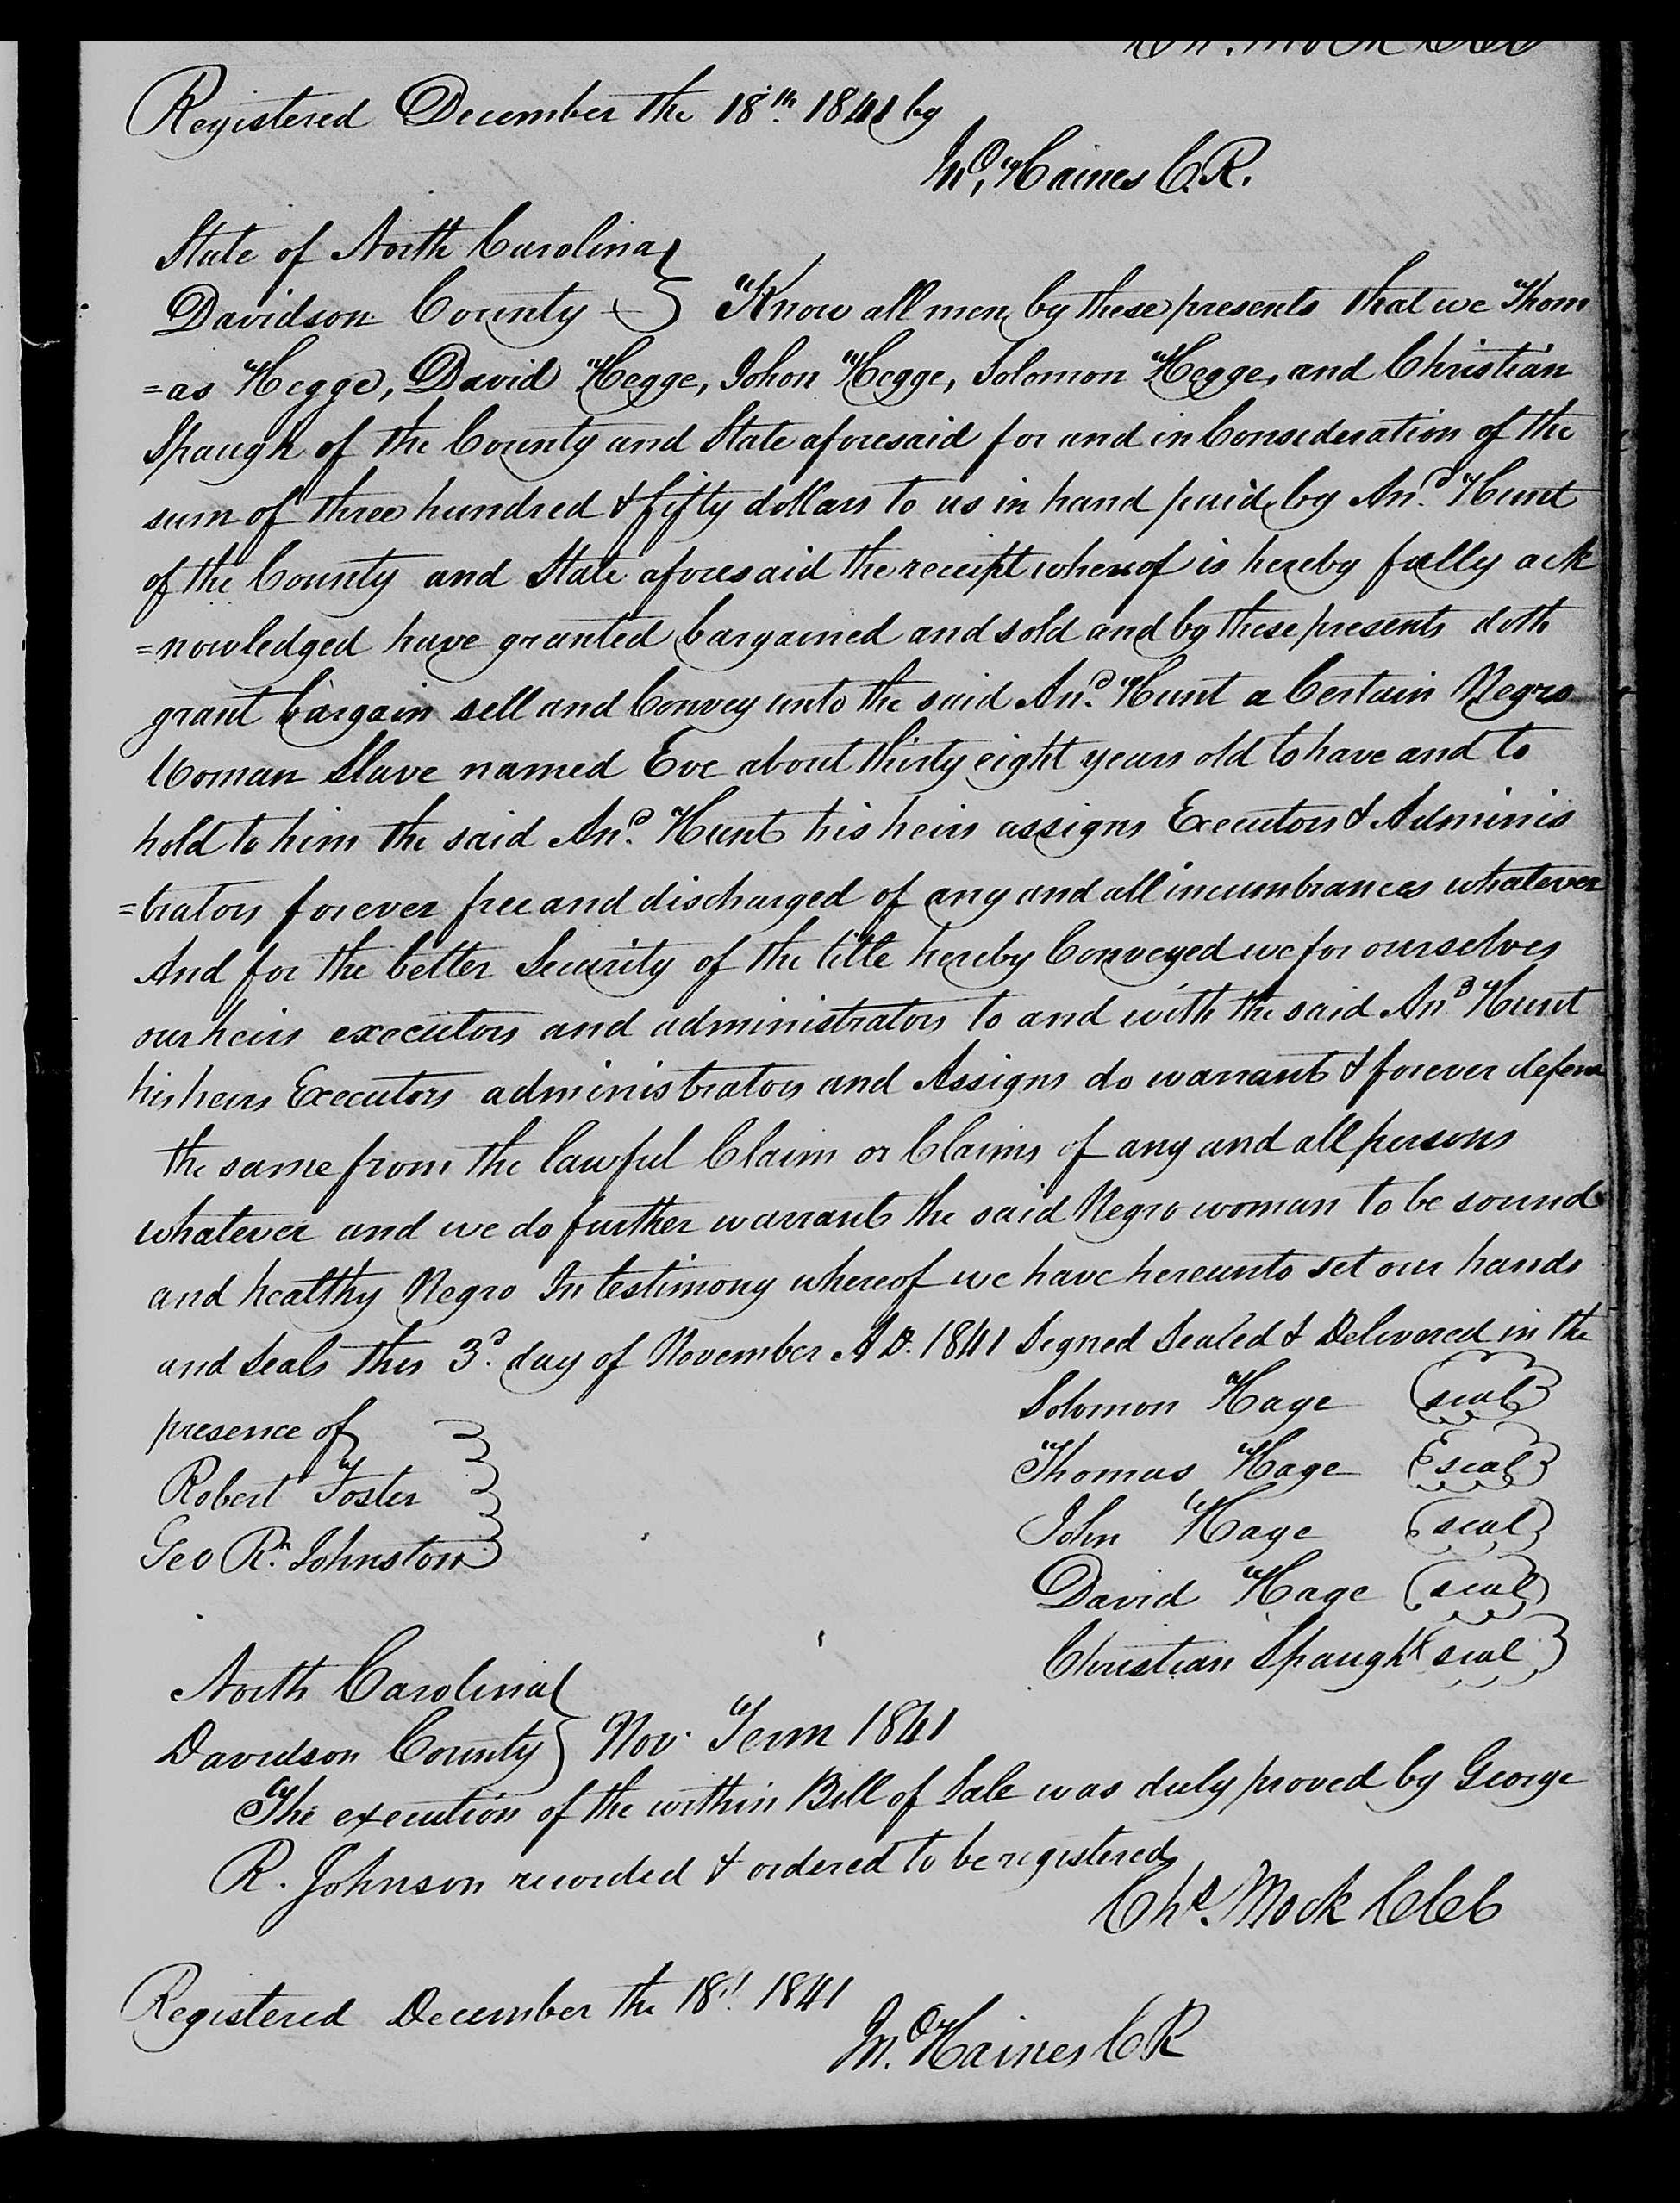 Registered December the 18th 1841 by
Jno. Haines C.R.
State of North Carolina
Davidson County } Know all men by these presents that we Thom
=as Hegge, David Hegge, Johon Hegge, Solomon Hegge, and Christian
Spaugh of the County and State aforesaid for and in Consideration of the
sum of three hundred & fifty dollars to us in hand paid by And. Hunt
of the County and State aforesaid the receipt whereof is hereby fully ack
=nowledged have granted bargained and sold and by these presents doth
grant bargain sell and Convey unto the said And. Hunt a Certain Negro
Woman Slave named Eve about thirty eight years old to have and to
hold to him the said And. Hunt his heirs assigns Executors & Adminis
=trators forever free and discharged of any and all incumbrances whatever
And for the better Security of the title hereby Conveyed we for ourselves
our heirs executors and administrators to and with the said And Hunt
his heirs Executors administrators and Assigns do warrant & forever defend
the same from the lawful Claim or Claims of any and all persons
whatever and we do further warrant the said Negro woman to be sound
and healthy Negro In testimony whereof we have hereunto set our hands
and Seals this 3d. day of November A.D. 1841 Signed Sealed & Delivered in the
presence of
Robert Foster
Geo Rn. Johnston
Solomon Hage (seal)
Thomas Hage (seal)
John Hage (seal)
David Hage (seal)
Christian Spaugh (seal)
North Carolina
Davidson County } Nov. Term 1841
The execution of the within Bill of Sale was duly proved by George
R. Johnson recorded & ordered to be registered
Chs. Mock Clk
Registered December the 18th. 1841
Jno. Haines CR